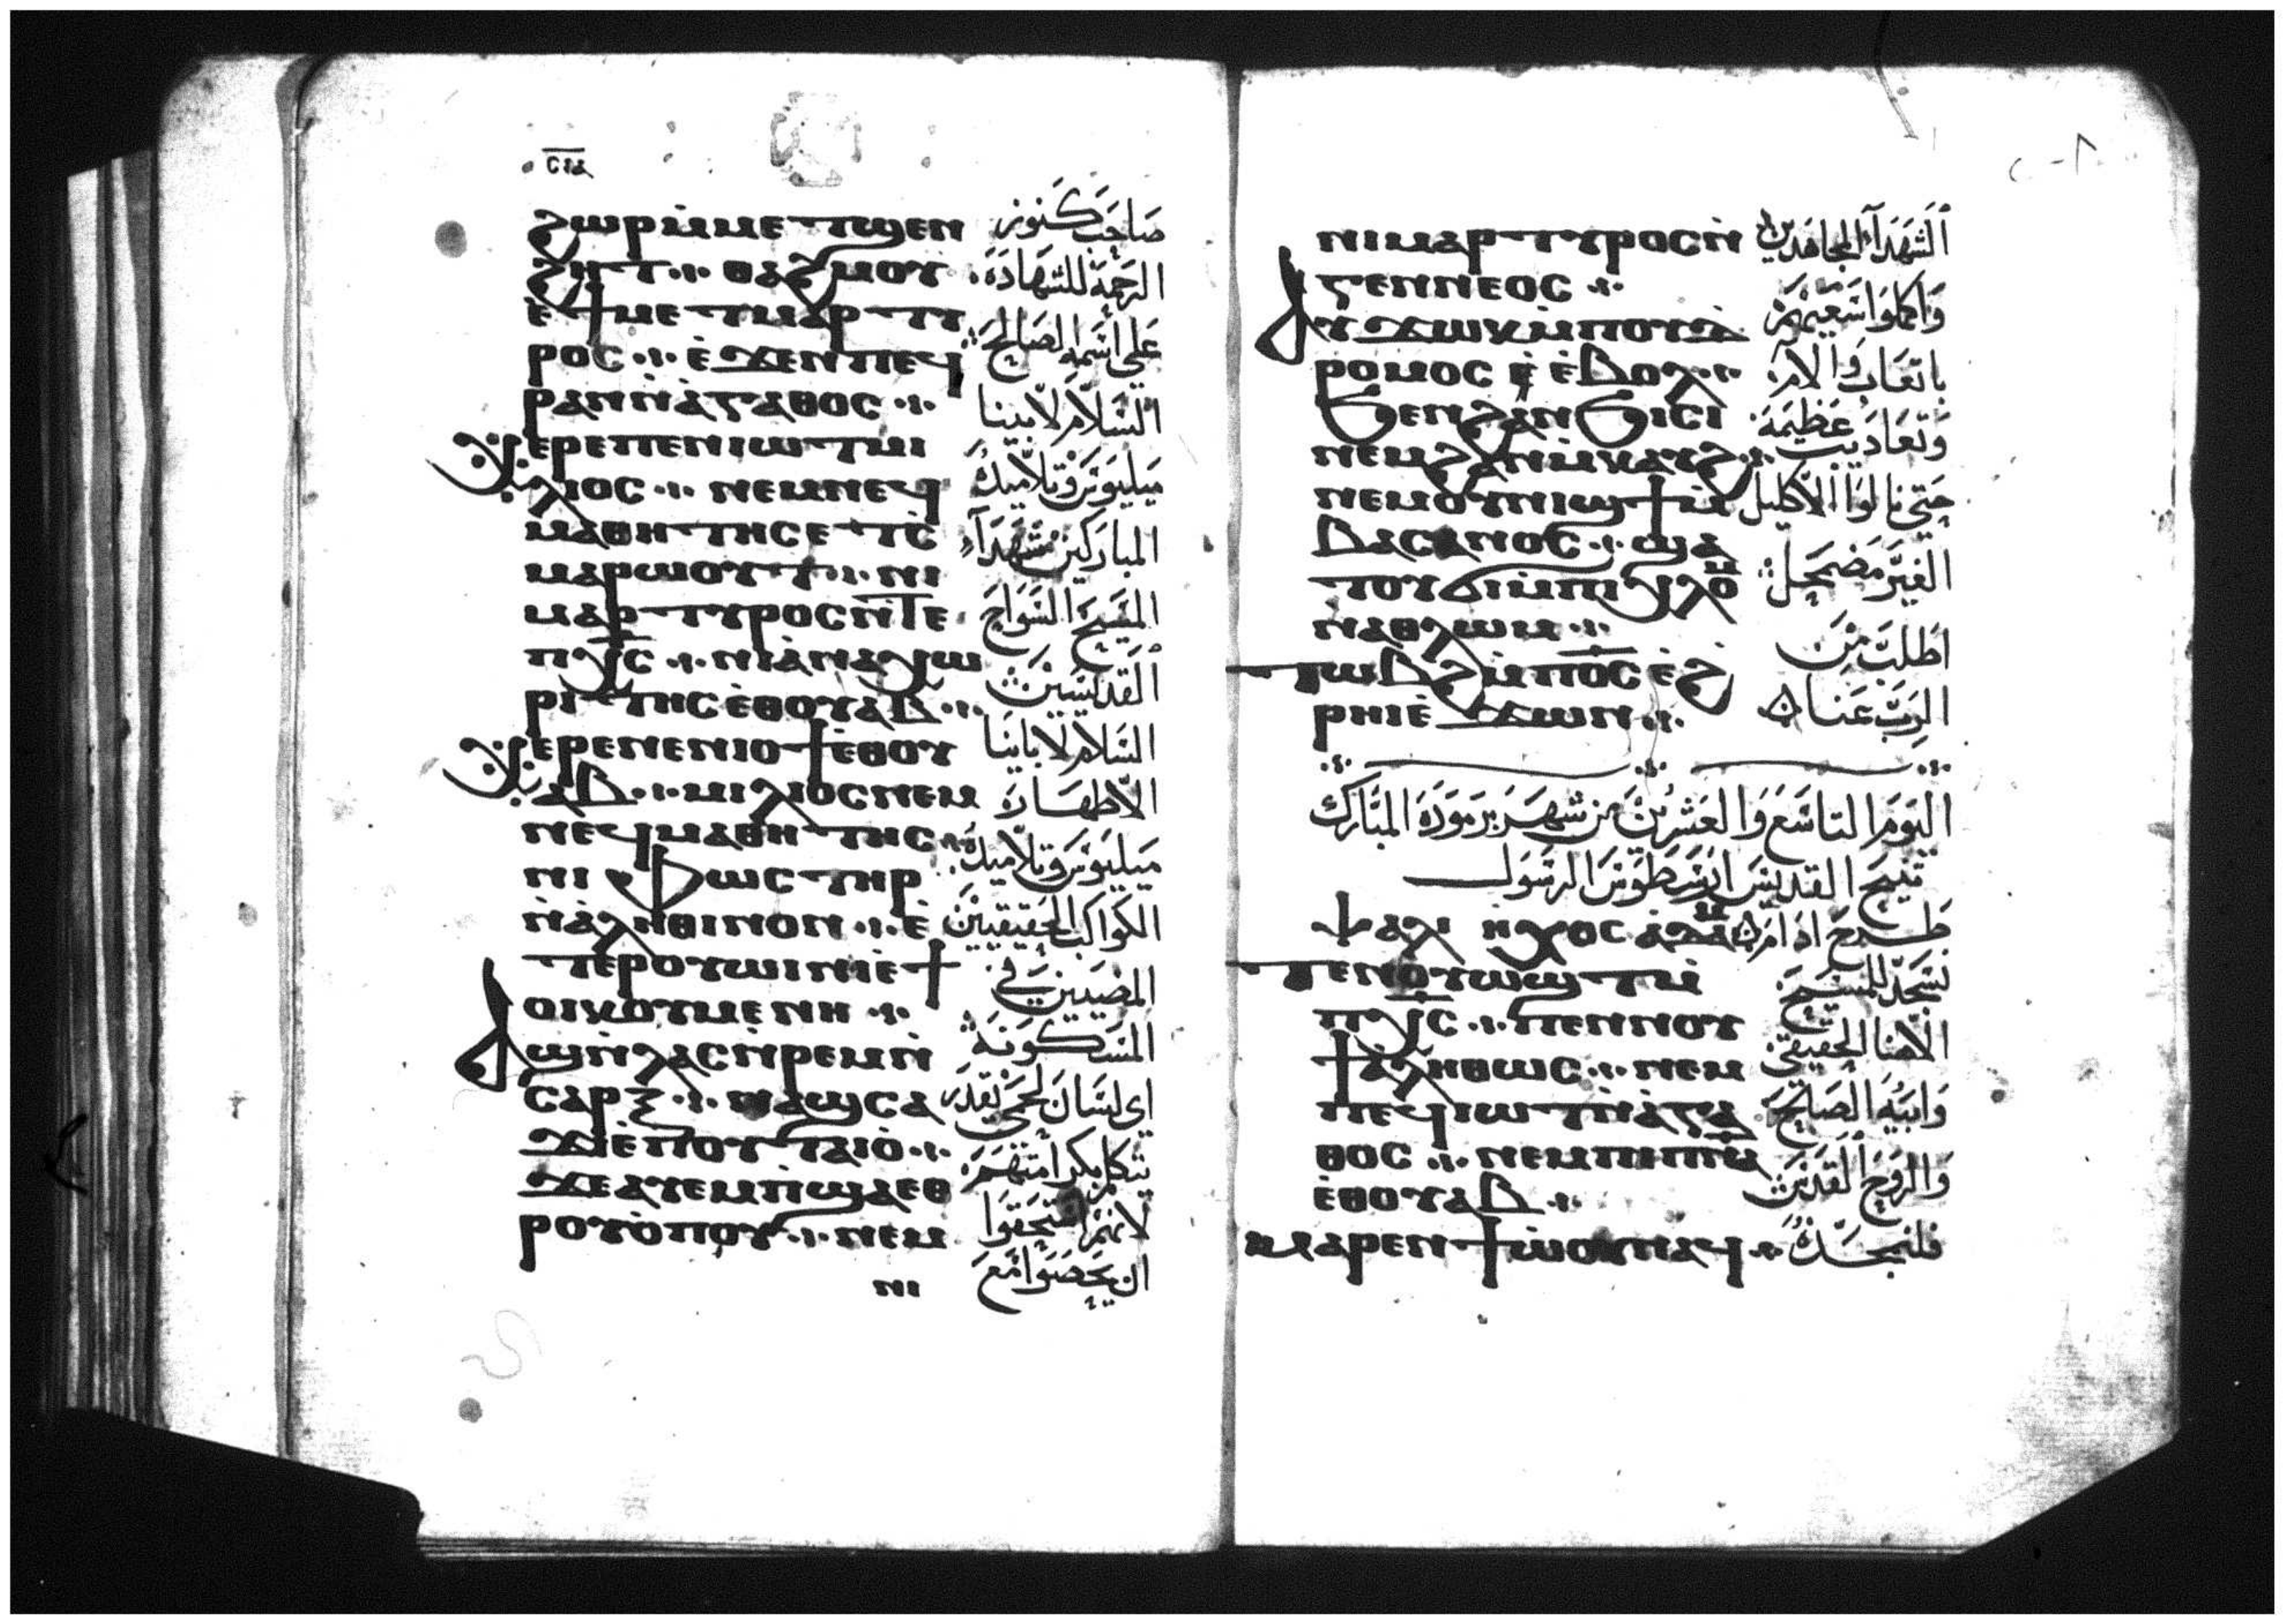 ϩⲱⲣⲙ̀ⲙⲉⲧϣⲉⲛ
ϩⲏⲧ ⲑⲁϩⲙⲟⲩ
ⲉ̀ϯⲙⲉⲧⲙⲁⲣⲧⲩ
ⲣⲟⲥ ⲉ̀ϫⲉⲛⲡⲉϥ
ⲣⲁⲛⲛ̀ⲁ̀ⲅⲁⲑⲟⲥ
ⲭⲉⲣⲉⲡⲉⲛⲓⲱⲧⲙⲓ
ⲗⲓⲟⲥ ⲛⲉⲙⲛⲉϥ
ⲙⲁⲑⲏⲧⲏⲥⲉⲧⲥ̀
ⲙⲁⲣⲱⲟⲩⲧ ⲛⲓ
ⲙⲁⲣⲧⲩⲣⲟⲥⲛ̀ⲧⲉ
ⲡⲭ̅ⲥ̅ ⲛⲓⲁ̀ⲛⲁⲭⲱ
ⲣⲓⲧⲏⲥⲉ̀ⲑⲟⲩⲁⲃ
ⲭⲉⲣⲉⲛⲉⲛⲓⲟϯⲉ̀ⲑⲟⲩ
ⲁⲃ ⲙⲓⲗⲓⲟⲥⲛⲉⲙ
ⲛⲉϥⲙⲁⲑⲏⲧⲏⲥ
ⲛⲓ ⲫⲱⲥⲧⲏⲣ
ⲛ̀ⲁ̀ⲗⲏⲑⲓⲛⲟⲛ ⲉ̀
ⲧⲉⲣⲟⲩⲱⲓⲛⲓⲉ̀ϯ
ⲟⲓⲕⲟⲩⲙⲉⲛⲏ
ⲁϣⲛ̀ⲗⲁⲥⲛ̀ⲣⲉⲙⲛ̀
ⲥⲁⲣⲝ ⲛⲁϣⲥⲁ
ϫⲓⲉ̀ⲡⲟⲩⲧⲁⲓⲟ̀
ϫⲉⲁⲩⲉⲙⲡϣⲁⲉⲑ
ⲣⲟⲩⲟ̀ⲡⲟⲩ ⲛⲉⲙ
ⲛⲓ
صَاحِب كَنوز
الرَحمَة للشَهَادَة
عَلى اسْمه الصَالِح
السَلاَم لاَبينا
ميليوس وَتلاَميدهُ
المبارَكين شهَدَآء
المسِيح السَوَاح
القديسين
السَلاَم لابَاينَا
الاَطهَارَة
ميليوس وَتلاَميدهُ
الكَوَاكب الحَقيقيين
المضيين فى
المسَكونَة
اى لسَان لحمى يقدَر
يتكلم بكرامَتهم
لانهم استحَقوا
ان يحصَوا مَع
ⲛⲓⲙⲁⲣⲧⲩⲣⲟⲥⲛ̀
ⲅⲉⲛⲛⲉⲟⲥ
ⲁⲩϫⲱⲕⲙ̀ⲡⲟⲩⲇ
ⲣⲟⲙⲟⲥ ⲉ̀ⲃⲟⲗ
ϧⲉⲛϩⲁⲛϧⲓⲥⲓ
ⲛⲉⲙϩⲁⲛⲙ̀ⲕⲁⲩϩ
ⲛⲉⲙⲟⲩⲛⲓϣϯⲙ̀
ⲃⲁⲥⲁⲛⲟⲥ ϣⲁ
ⲧⲟⲩϭⲓⲙ̀ⲡⲓⲭⲗⲟⲙ
ⲛⲁⲑⲗⲱⲙ
ⲧⲱⲃϩⲙ̀ⲡⲟ̅ⲥ̅ ⲉ̀ϩ
ⲣⲏⲓⲉ̀ϫⲱⲛ
الشهَدَآء المجاهدين
وَاكملوا سَعيَهم
باتعَاب وَالام
وَتعَاديب عَظيمَة
حَتى نالوَا الاَكليل
الغيَر مَضمحل
اطلب مِن
الرَب عَنا
اليَوم التاسَع وَالعَشرين من شهَر برموَدَة المبَارك
تنيح القديس ارسَطوَس الرسَول
ⲯⲁⲗⲓ ⲏⲭⲟⲥ ⲁ̀ⲇⲁⲙ طَرح ادام
ⲧⲉⲛⲟⲩⲱϣⲧⲙ̀
ⲡⲭ̅ⲥ̅ ⲡⲉⲛⲛⲟⲩ
ϯⲁⲗⲏⲑⲱⲥ ⲛⲉⲙ
ⲡⲉϥⲓⲱⲧⲛ̀ⲁ̀ⲅⲁ
ⲑⲟⲥ ⲛⲉⲙⲡⲓⲡ̅ⲛ̅ⲁ̅
ⲉ̀ⲑⲟⲩⲁⲃ
ⲙⲁⲣⲉⲛϯⲱ̀ⲟⲩⲛⲁϥ
نسَجد للمسِيح
الاَهنا الحقيقى
وَابيه الصَالح
وَالروَح القدَس
فلنمجَدهُ